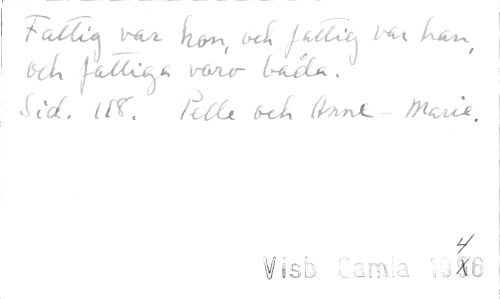 Fattig var hon, och fattig var han,
och fattiga voro båda.
Sid. 118. Pelle och Anne-Marie.
4
Visb Gamla 1986